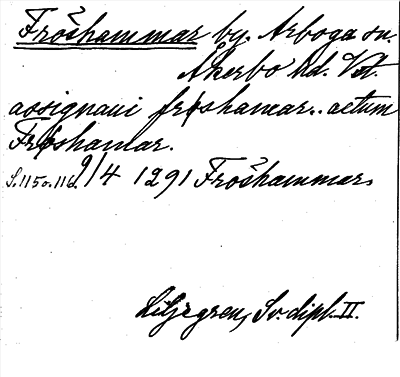 Frošhammar by, Arboga sn.
Åkerbo hd. Vstm.
assignaui frøshamar.. actum
Frøshamar.
S. 115 o. 116. 9/4 1291 Frošhammar
Liljegren, Sv. dipl. II.